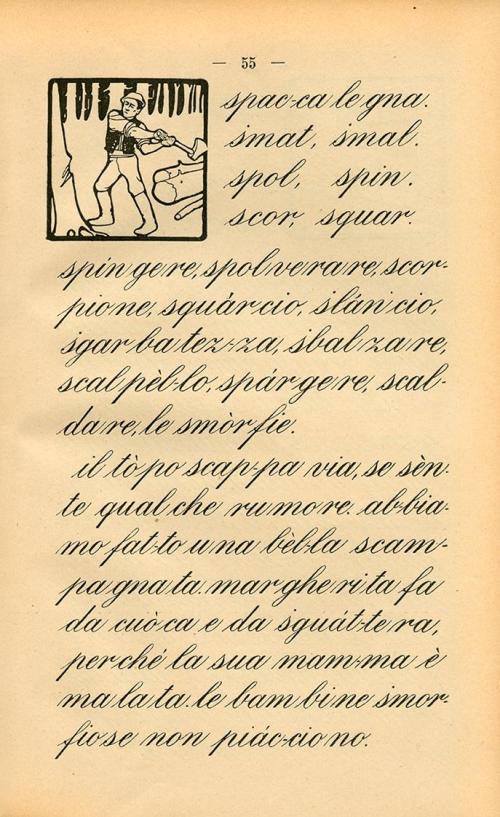 — 55 —
spac-ca le gna.
smat, smal.
spol, spin.
scor, squar.
spin ge re, spol ve ra re, scor-
pio ne, squàr cio, slán cio,
sgar ba tez-za, sbal za re,
scal pèl-lo, spár ge re, scal-
da re, le smòr fie.
il tò po scap-pa via, se sèn-
te qual che ru mo re. ab-bia-
mo fat-to u na bèl-la scam-
pa gna ta. mar ghe ri ta fa
da cuò ca e da sguát-te ra,
per ché la sua mam-ma è
ma la ta. le bam bi ne smor-
fio se non piác-cio no.